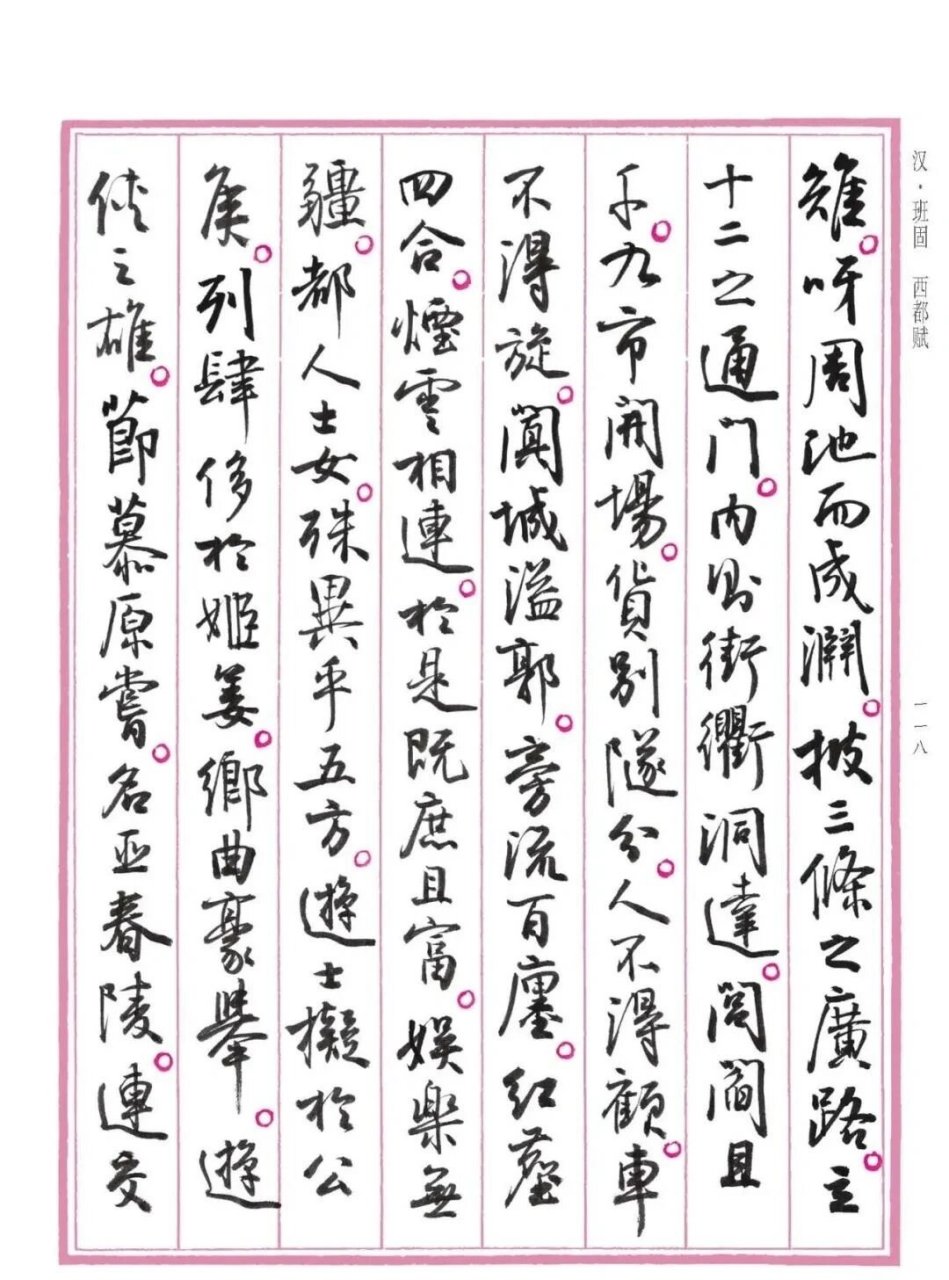 汉·班固 西都赋
一一八
雉。呀周池而成淵。披三條之廣路。立
十二之通門。内則街衢洞達。閭閻且
千。九市開場。貨別隧分。人不得顧。車
不得旋。闐城溢郭。旁流百廛。紅塵
四合。煙雲相連。於是既庶且富。娱樂無
疆。都人士女。殊異乎五方。遊士擬於公
侯。列肆侈於姬姜。鄉曲豪舉。遊
俠之雄。節慕原嘗。名亞春陵。連交